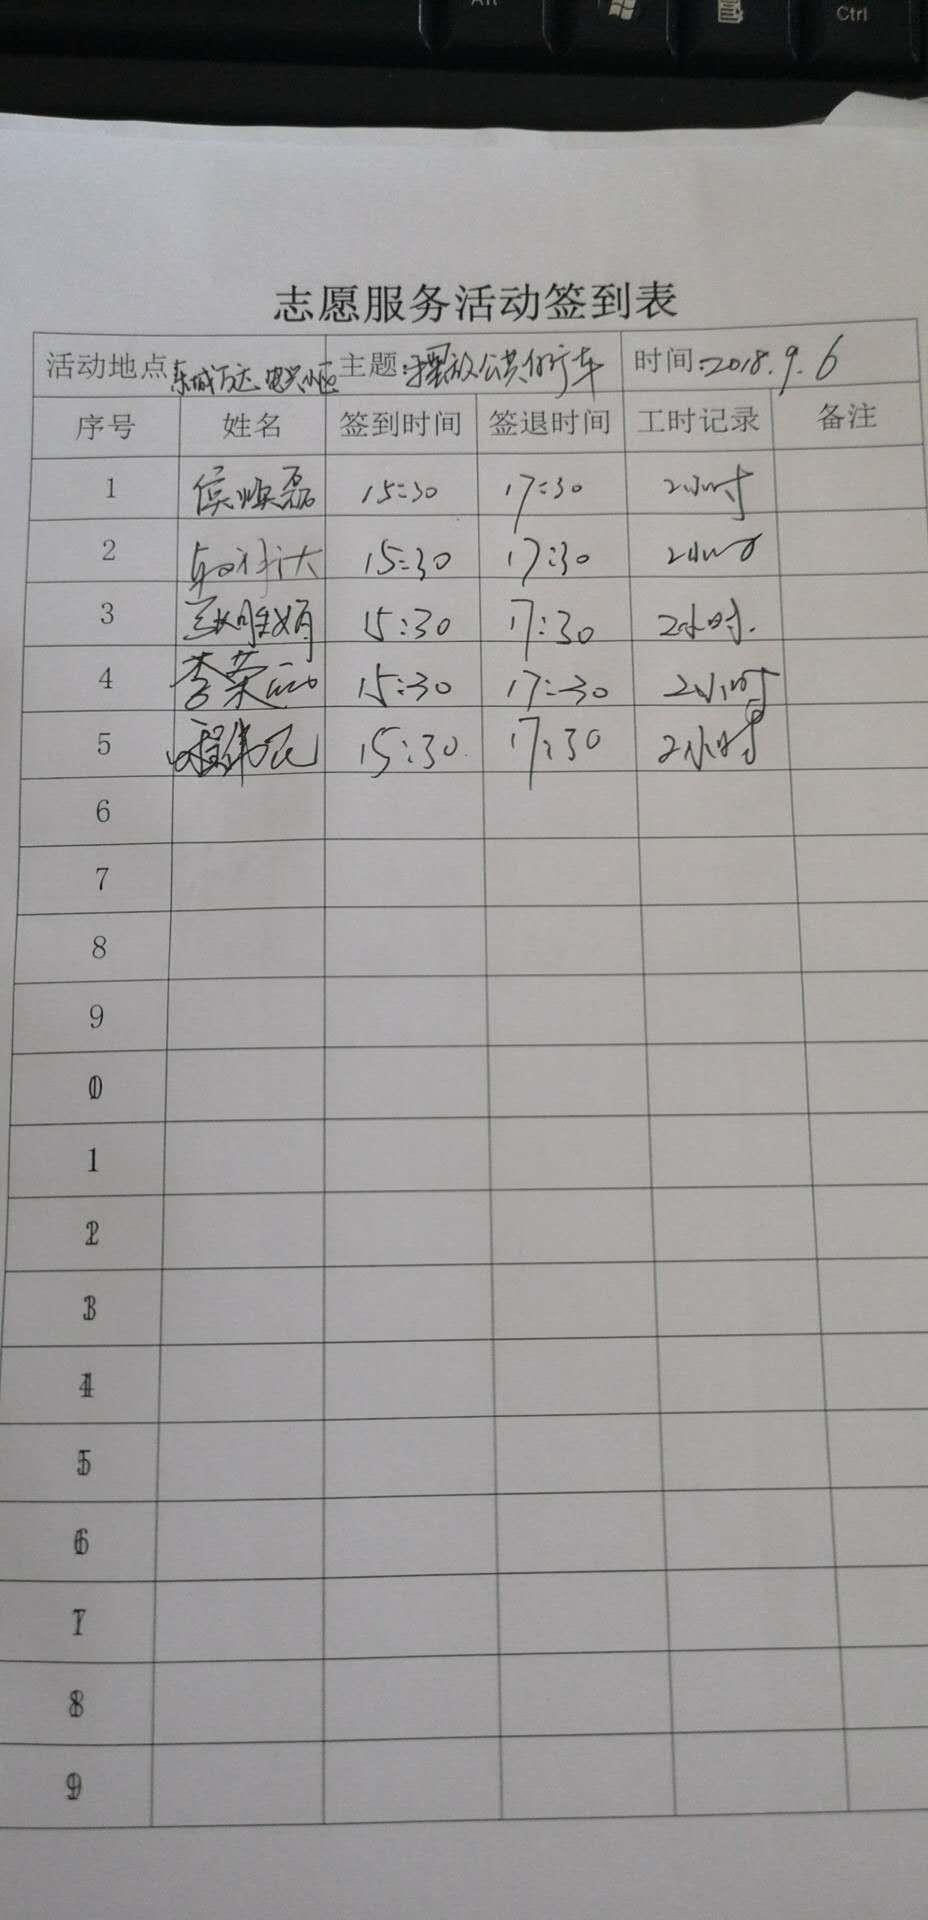 Alt
Ctrl
志愿服务活动签到表
活动地点 东城万达 主题:摆放公共自行车 时间:2018.9.6
序号 姓名 签到时间 签退时间 工时记录 备注
1 侯焕磊 15:30 17:30 2小时
2 15:30 17:30 2小时
3 15:30 17:30 2小时.
4 李荣 15:30 17:30 2小时
5 程伟民 15:30 17:30 2小时
6
7
8
9
10
11
12
13
14
15
16
17
18
19